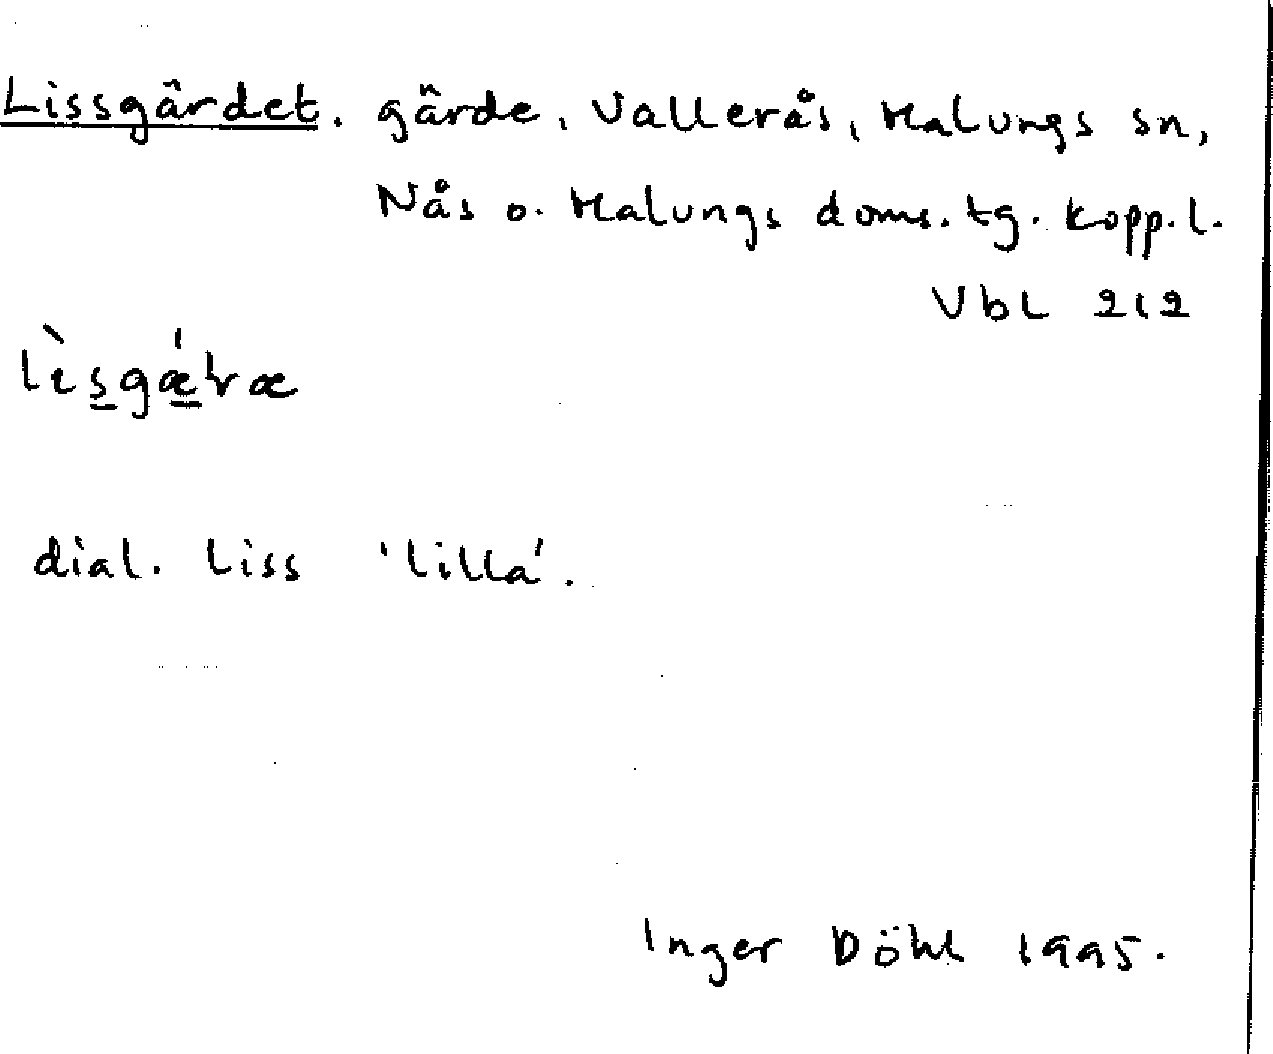 Lissgärdet. gärde, Vallerås, Malungs sn,
Nås o. Malungs doms. tg. Kopp. l.
Vbl 212
dial. liss 'lilla'.
Inger Döhl 1995.